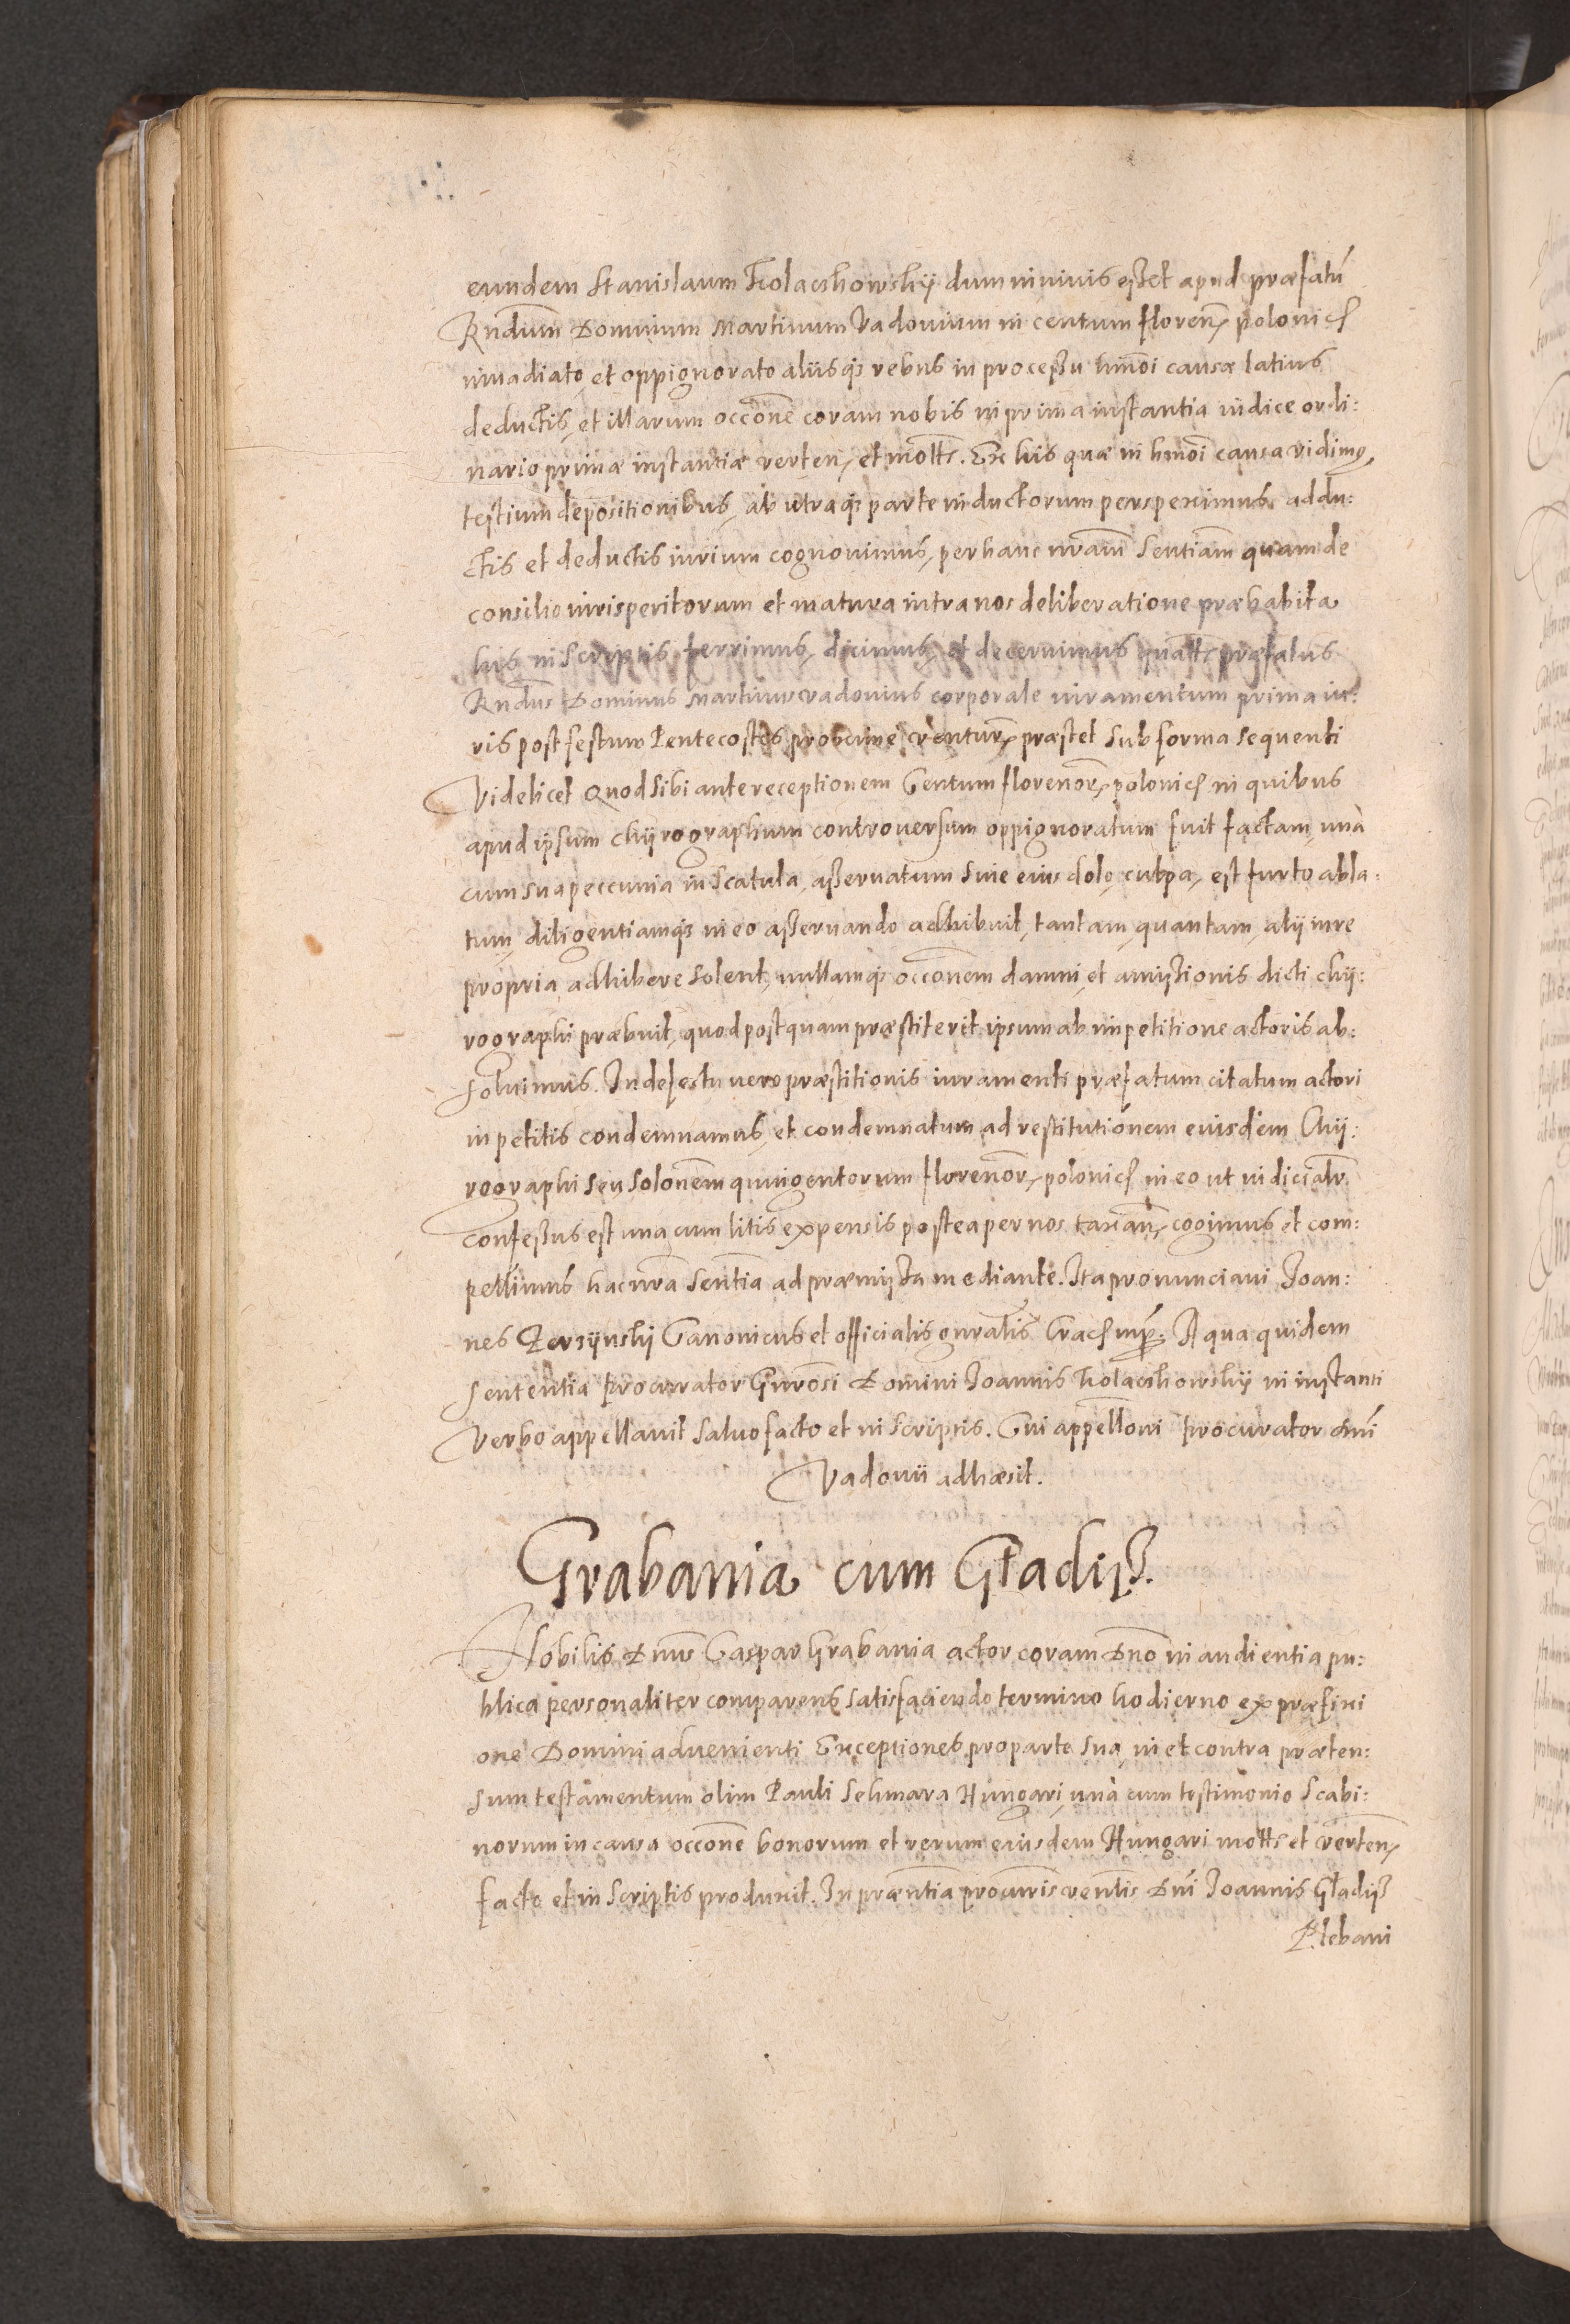 eundem Stanislaum Kolaczkowskÿ dum in vivis esset apud præfatũ
Rndum Dominum Martinum Vadovium in centum floreñ polonicʃ
invadiato, et oppignorato aliisqʒ rebus in processu hmõi causæ latius
deductis, et illarum occoñe coram nobis in prima instantia iudice ordi:
nario primæ instantiæ verteñ, et mott. Ex his quæ in hmõi causa vidimꝰ,
testium depositionibus, ab utraqʒ parte inductorum perspeximus addu:
ctis et deductis iurium cognovimus, per hanc nrãm Sentiãm quam de
consilio iurisperitorum et matura intra nos deliberatione præhabita
his in scriptis ferrimus, dicimus, et decernimus quatt præfatus
Rndus Dominus Martinus Vadovius corporale iuramentum prima iu:
ris post festum Pentecostes proxime ventur præstet sub forma sequenti
Videlicet Quod sibi ante receptionem Centum florenor polonicʃ in quibus
apud ipsum chÿrographum controversum oppignoratum fuit factam, unà
cum sua peccunia in scatula, asservatum sine eius dolo, culpa, est furto abla:
tum, diligentiamqʒ in eo asservando adhibuit, tantam, quantam, alij in re
propria adhibere solent, nullamqʒ occonem damni, et amissionis dicti chÿ:
rographi præbuit, quod postquam præstiterit ipsum ab impetitione actoris ab:
solvimus. In defectu vero præstitionis iuramenti præfatum citatum actori
in petitis condemnamus, et condemnatum ad restitutionem eiusdem Chÿ:
rographi seu Solonem quingentorum florenor, polonicʃ in eo ut iudicialr
confessus est una cum litis expensis postea per nos taxan, cogimus et com:
pellimus hac nra sentia ad præmissa mediante. Ita pronunciavi Joan:
nes Zerzÿnskÿ Canonicus et officialis gnralis Cracʃ mp. A qua quidem
Sententia procurator Gnrosi Domini Joannis Kolaczkowskÿ in instanti
Verbo appellavit salvo facto et in scriptis. Cui appelloni procurator dni
Vadovii adhæsit.
Grabania cum Gładijß.
Nobilis Dnus Caspar Grabania actor coram Dno in audientia pu:
blica personaliter comparens satisfaciendo termino hodierno ex præfixi
one Domini advenienti Exceptiones pro parte sua, in et contra præten:
sum testamentum olim Pauli Sekmara Hungari, unà cum testimonio Scabi:
norum in causa occone bonorum et rerum eiusdem Hungari mott et verten
facto et in scriptis produxit. In præntia procuris rentis Dni Joannis Gładijß
Plebani